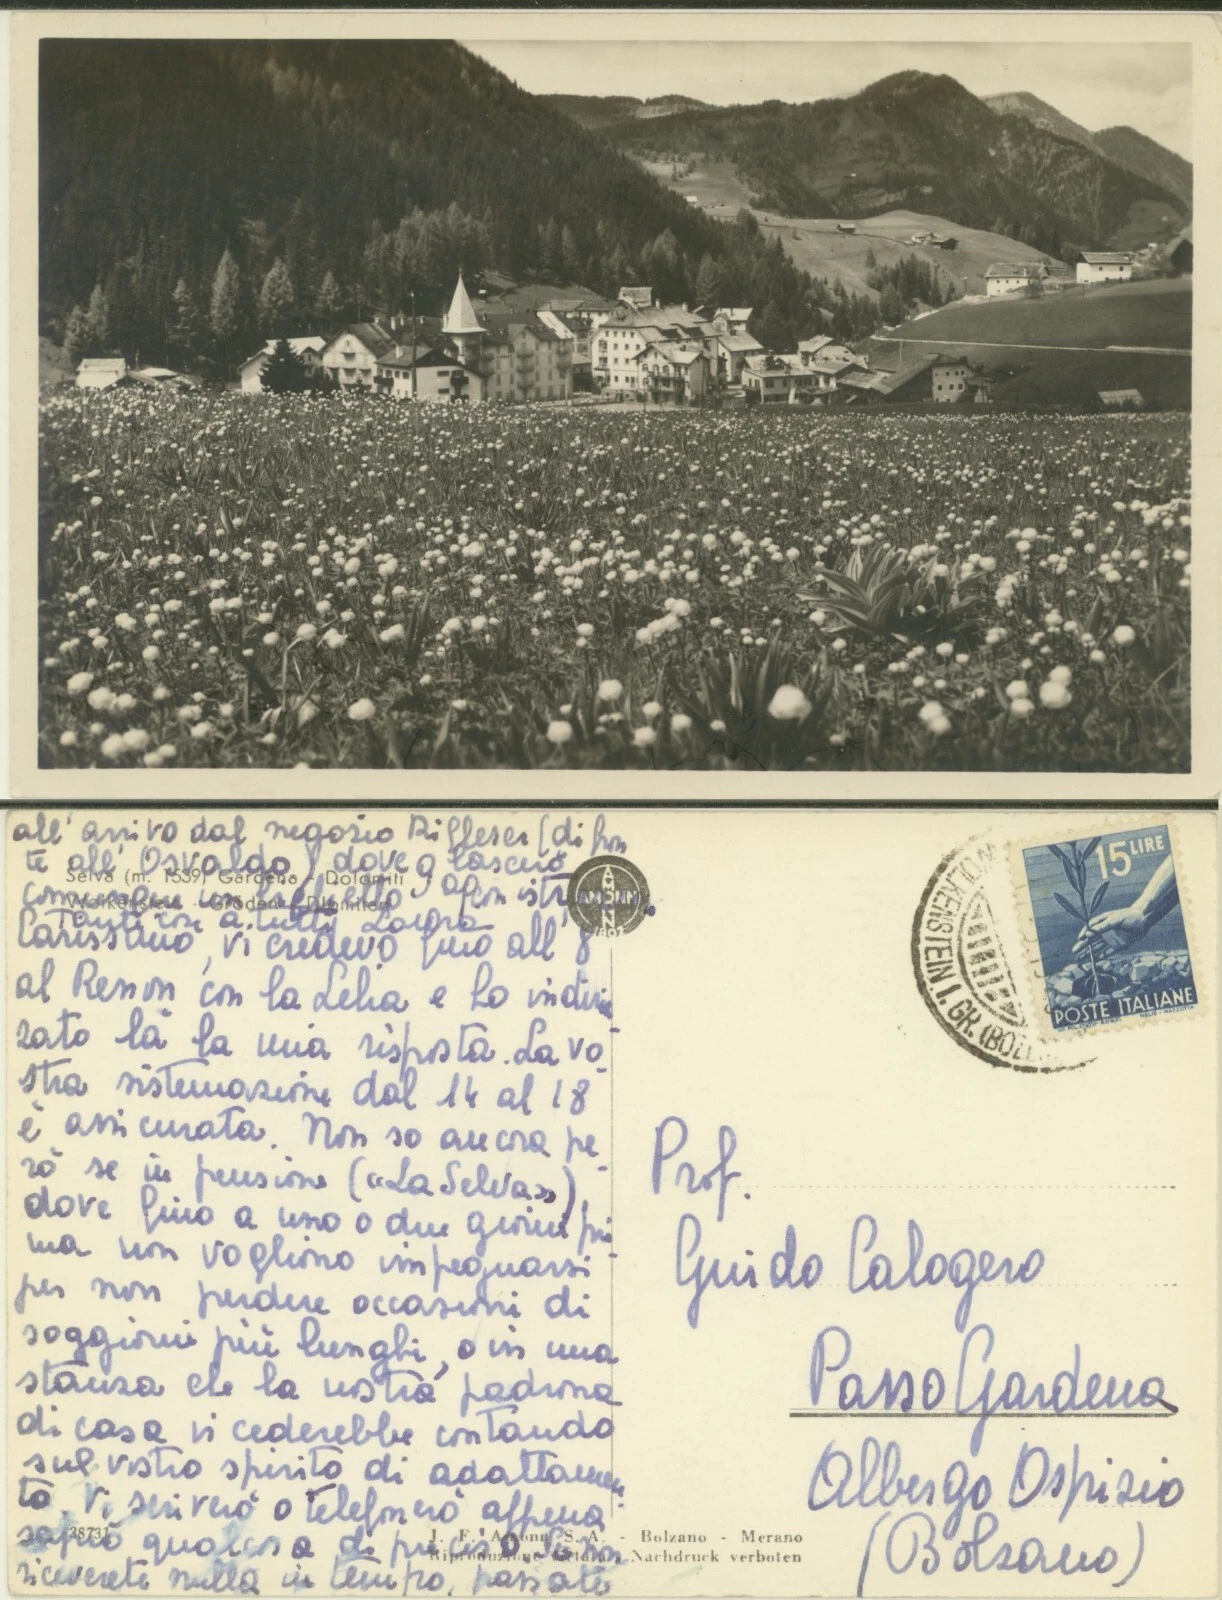 all'arrivo dal negozio Rifleser (di fron
te all'Osvaldo) dove lascerò
comunque un biglietto con istr.
Tante cose a tutti Laura
Selva (m. 1539) Gardena - Dolomiti
Wolkenstein - Gröden - Dolomiten
AMONN
Carissimo, vi credevo fino all'8
al Renon con la Lelia e ho indiriz
zato là la mia risposta. La vo
stra sistemazione dal 14 al 18
è assicurata. Non so ancora pe-
rò se in pensione («La Selva»),
dove fino a uno o due giorni pri
ma non vogliono impegnarsi
per non perdere occasioni di
soggiorni più lunghi, o in una
stanza che la nostra padrona
di casa vi cederebbe contando
sul vostro spirito di adattamen
to. Vi scriverò o telefonerò appena
saprò qualcosa di preciso. Se non
riceverete nulla in tempo, passate
38731
J. F. Amonn S. A. - Bolzano - Merano
Riproduzione vietata - Nachdruck verboten
WOLKENSTEIN I. GR. (BOLZ
15 LIRE
POSTE ITALIANE
Prof.
Guido Calogero
Passo Gardena
Albergo Ospizio
(Bolzano)